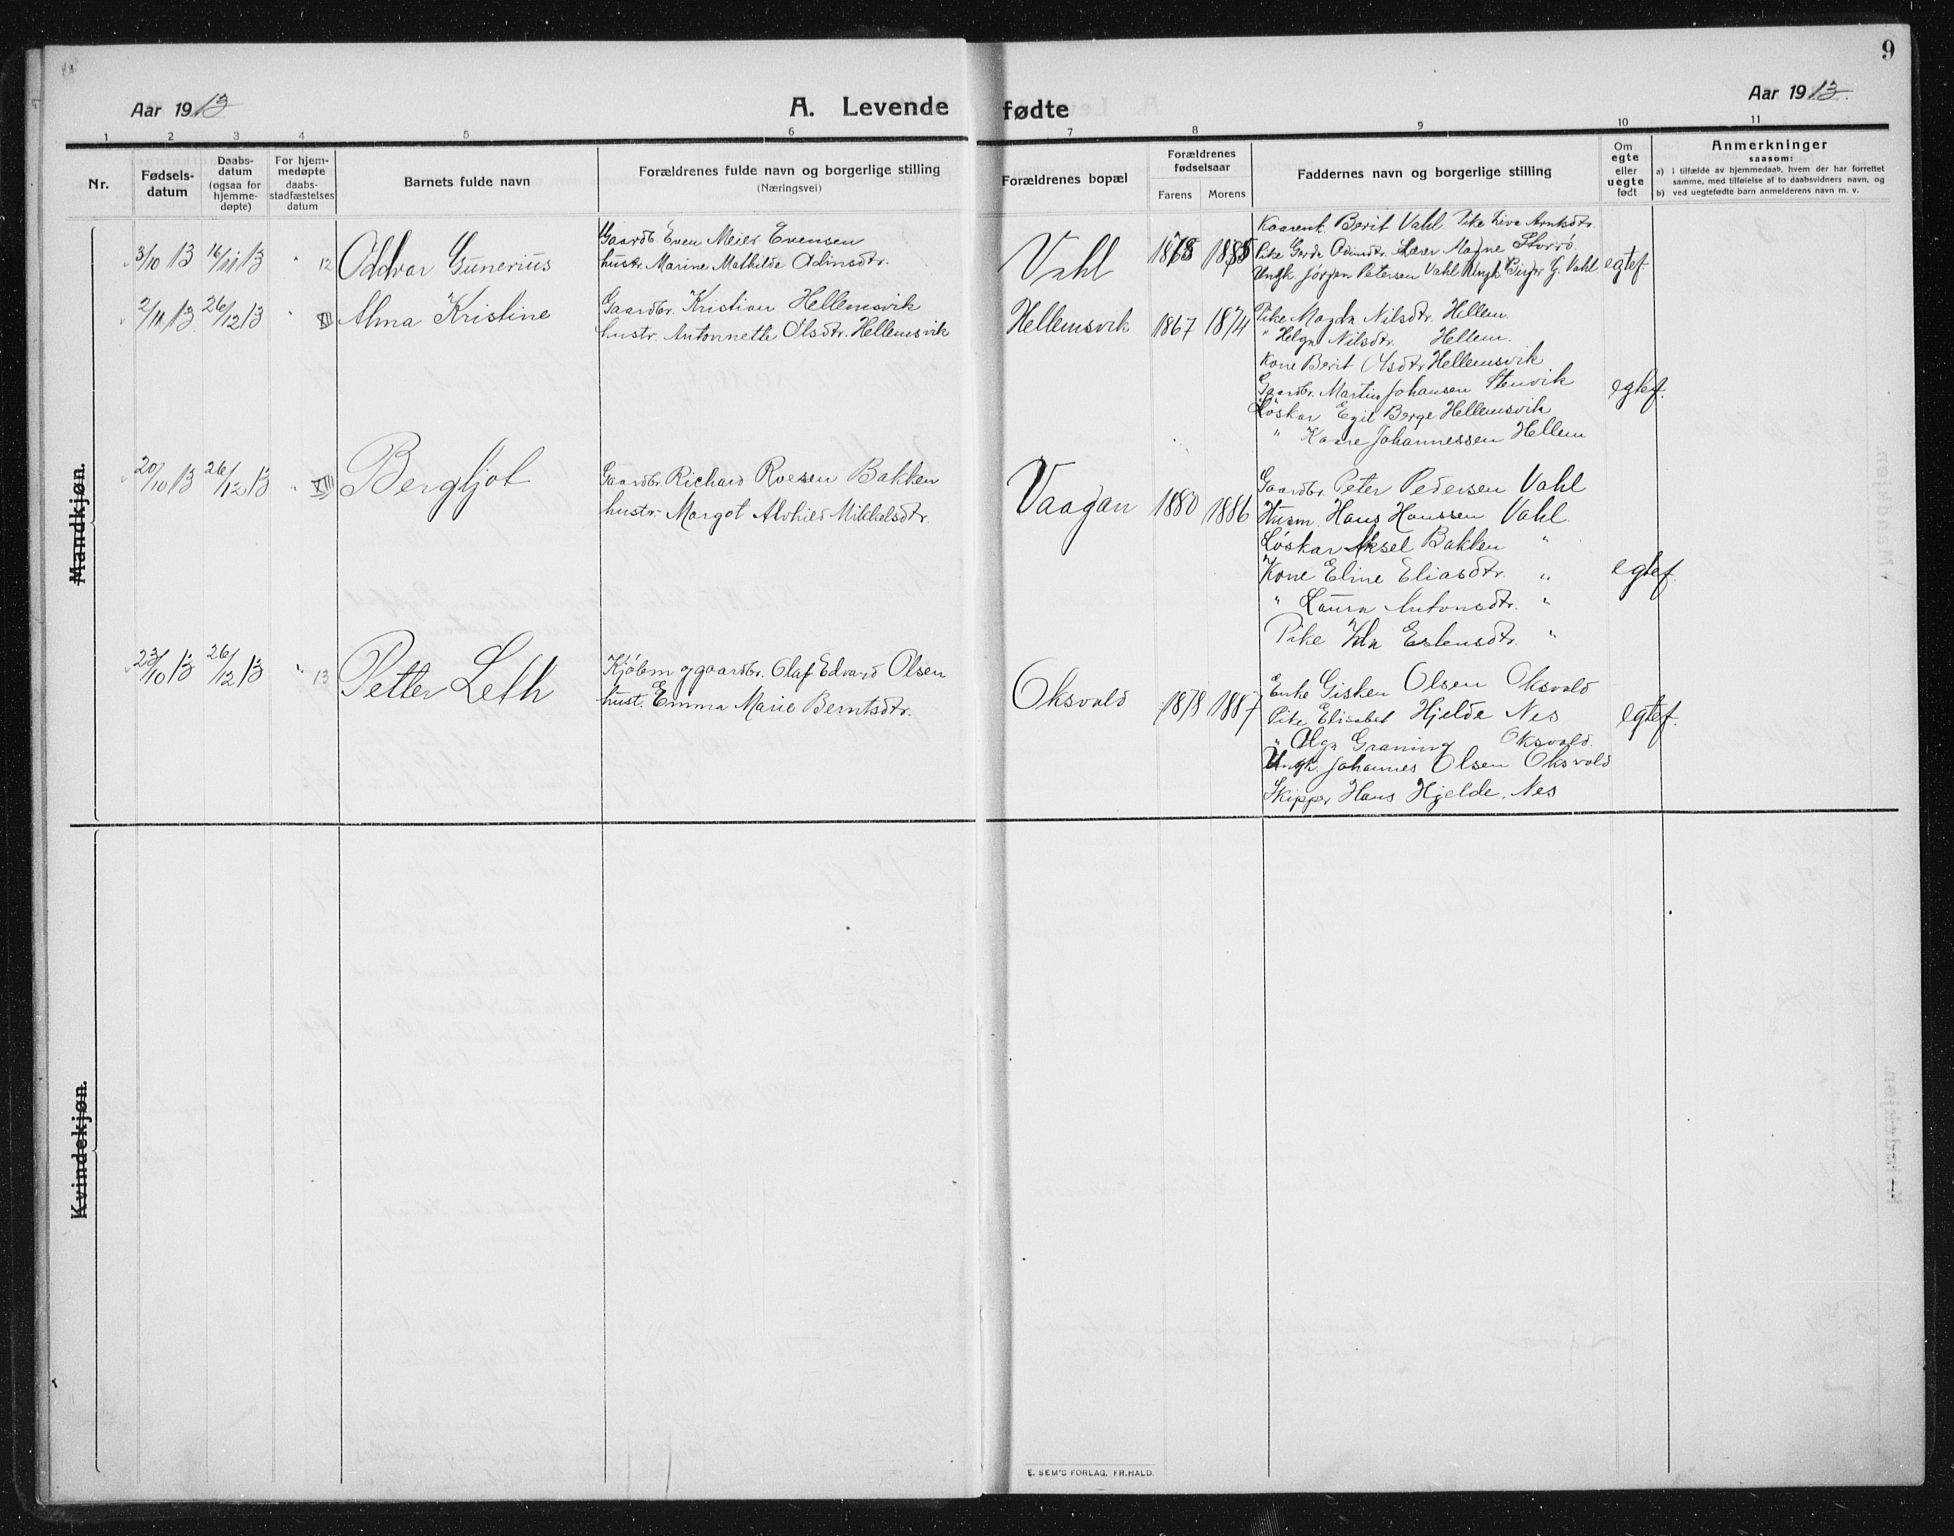 9
Aar 1913
A. Levende
fødte
Aar 1913.
1 2 3 4 5 6 7 8 9 10 11
Nr.
Fødsels-
datum
Daabs-
datum
(ogsaa for
hjemme-
døpte)
For hjem-
medøpte
daabs-
stadfæstelses
datum
Barnets fulde navn
Forældrenes fulde navn og borgerlige stilling
(Næringsvei)
Forældrenes bopæl
Forældrenes
fødselsaar
Farens Morens
Faddernes navn og borgerlige stilling
Om
egte
eller
uegte
født
Anmerkninger
saasom:
a) i tilfælde av hjemmedaab, hvem der har forrettet
samme, med tilføielse af to daabsvidners navn, og
b) ved uegtefødte barn anmelderens navn m. v.
Mandkjøn.
3/10 13 16/11 13 " 12 Oddvar Gunerius
Gaardb Even Meier Evensen
hustr. Marine Mathilde Odinsdtr.
Vahl
Berit Vahl Pike Arntsdtr.
Pike Gerda Odinsdtr. Lærer Magne Storrø
Ungk Jørgen Petersen Vahl Ungk G. Vahl
egtef.
2/11 13. 26/12 13 " XII Alma Kristine
Gaardbr. Kristian Hellemsvik
hustr. Antonnette Olsdtr. Hellemsvik
Hellemsvik 1867 1874
Pike Magda Nilsdtr. Hellem.
" Helga Nilsdtr. Hellem.
Kone Berit Olsdtr Hellemsvik
Gaardbr. Martin Johansen Stenvik
Løskar Egil Berge Hellemsvik
" Kaare Johannessen Hellem
egtef.
20/10 13 26/12 13 " XIII Bergljot
Gaardbr. Richard Roesen Bakken
hustr. Margot Alvhild Mikkelsdtr.
Vaagan 1880 1886
Gaardbr. Peter Pedersen Vahl
Husm. Hans Hanssen Vahl.
Løskar Aksel Bakken "
Kone Eline Eliasdtr. "
" Laura Antonsdtr. "
Pike Ida Estensdtr. "
egtef.
23/10 13 26/12 13 " 13 Petter Leth
Kjøbm og gaardbr. Olaf Edvard Olsen
hust. Emma Marie Berntsdtr.
Oksvold 1878 1887
Enke Gisken Olsen Oksvold
Pike Elisabet Hjelde Nes
" Olga Graning Oksvold.
Ungk. Johannes Olsen Oksvold
Skipper Hans Hjelde. Nes
egtef.
Kvindekjøn.
E. SEM'S FORLAG, FR.HALD.